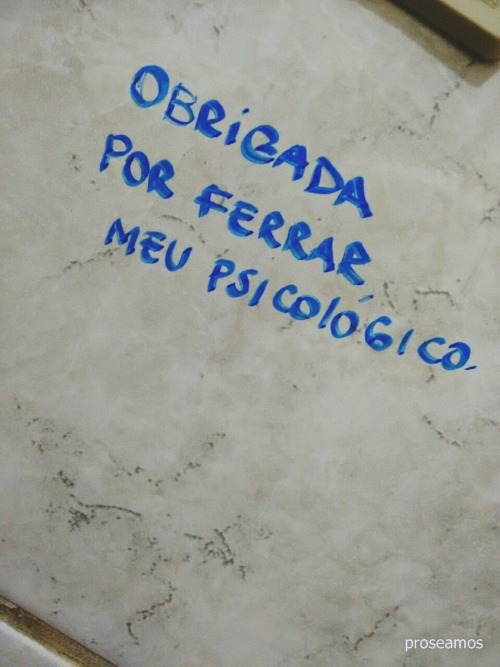 OBRIGADA
POR FERRAR
MEU PSICOLÓGICO.
proseamos